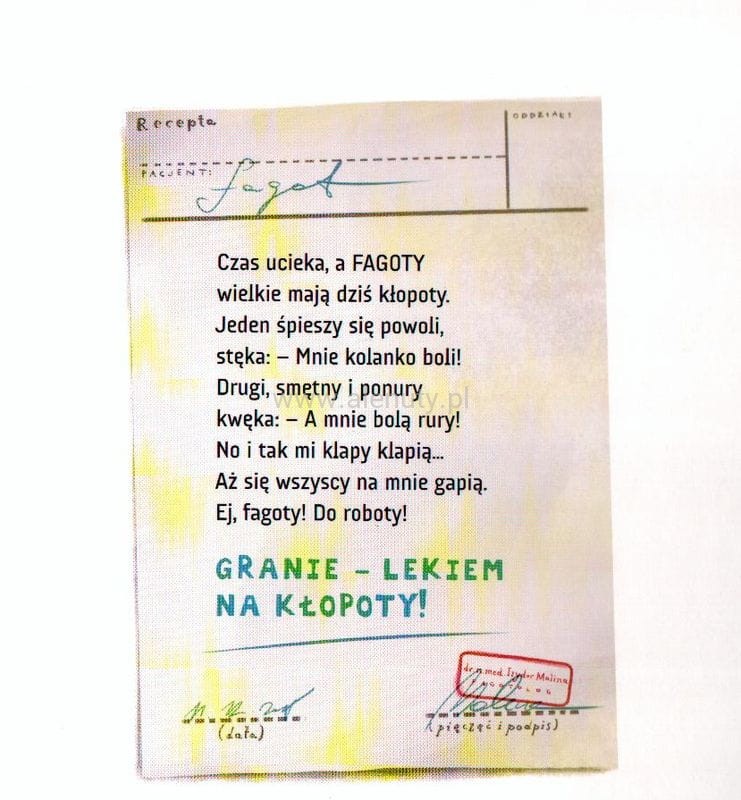 Recepta
ODDZIAŁ
PACJENT: fagot
Czas ucieka, a FAGOTY
wielkie mają dziś kłopoty.
Jeden śpieszy się powoli,
stęka: – Mnie kolanko boli!
Drugi, smętny i ponury
kwęka: – A mnie bolą rury!
No i tak mi klapy klapią...
Aż się wszyscy na mnie gapią.
Ej, fagoty! Do roboty!
GRANIE – LEKIEM
NA KŁOPOTY!
dr n. med. Izydor Malina
FAGOTOLOG
(data)
(pięczęć i podpis)
www.alenuty.pl